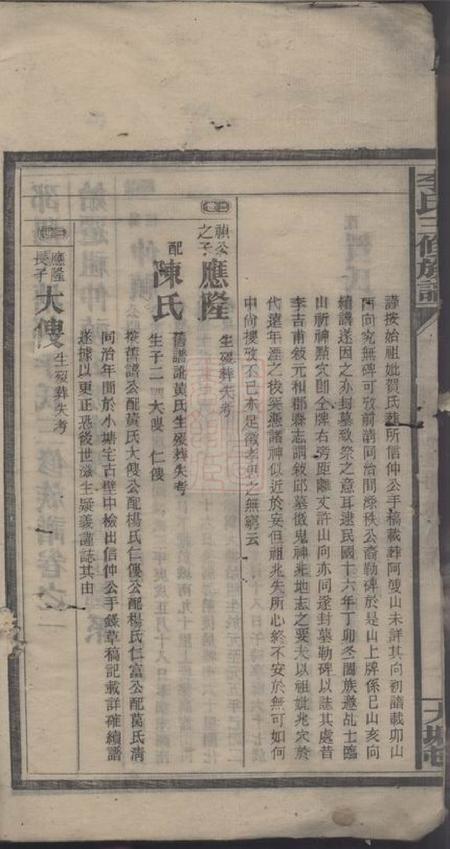 李氏三修族譜
謹按始祖妣賀氏葬所信仲公手稿載葬阿婆山未詳其向初譜載卯山
酉向究無碑可攷前清同治間源秩公裔勒碑於是山上牌係巳山亥向
續譜遂因之亦封墓致祭之意耳逮民國十六年丁卯冬闔族邀乩士臨
山祈神點穴即全牌右旁距離丈許山向亦同遂封墓勒碑以誌其處昔
李吉甫敘元和郡縣志謂敘邱墓徵鬼神非地志之要夫以祖妣兆穴於
代遠年湮之後憑諸神似近於妄但祖兆失所心終不安於無可如何
中尚搜攷不已亦足徵孝思之無窮云
禎公之子應隆 生歿葬失考
配陳氏 舊譜訛黃氏生歿葬失考
生子二 大儍 仁儍
按舊譜公配黃氏大儍公配楊氏仁儍公配楊氏仁富公配葛氏清
同治年間於小塘宅古壁中檢出信仲公手錄草稿記載詳確續譜
遂據以更正恐後世滋生疑義謹誌其由
應隆長子大儍 生歿葬失考